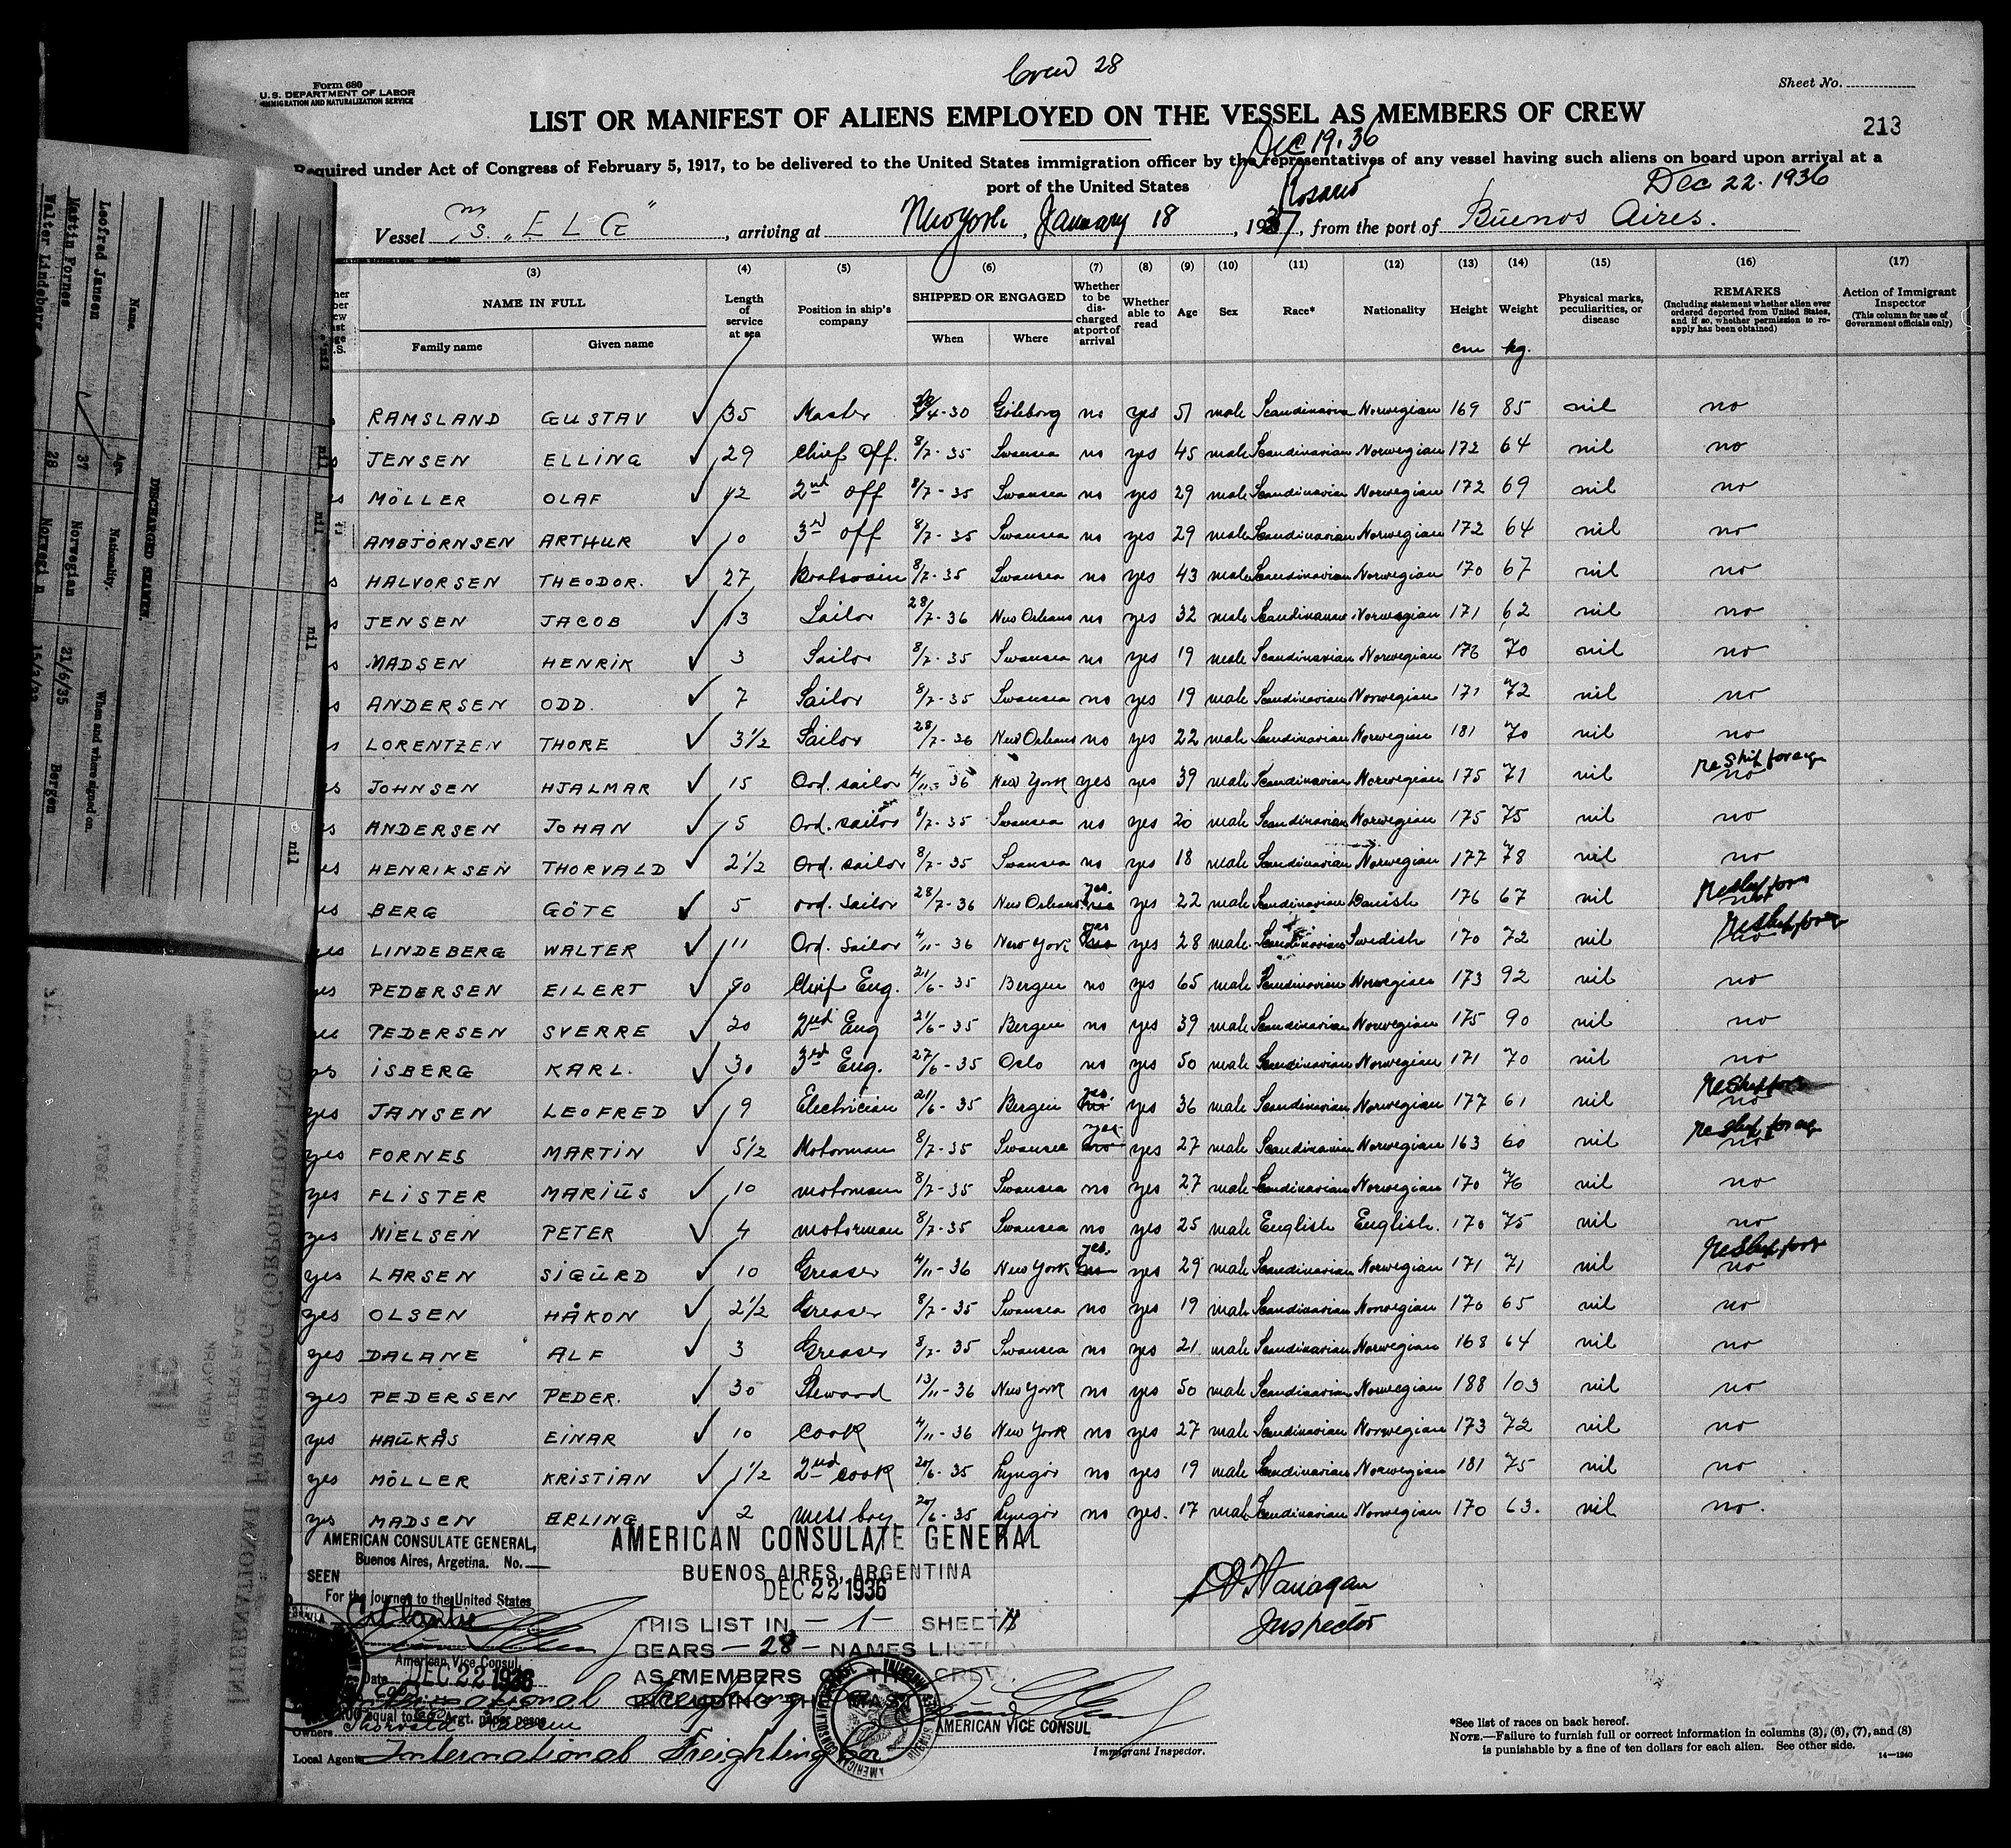 Crew 28
Form 680
U.S. DEPARTMENT OF LABOR
IMMIGRATION AND NATURALIZATION SERVICE
Sheet No.
LIST OR MANIFEST OF ALIENS EMPLOYED ON THE VESSEL AS MEMBERS OF CREW
213
Dec 19.36
Required under Act of Congress of February 5, 1917, to be delivered to the United States immigration officer by the representatives of any vessel having such aliens on board upon arrival at a
port of the United States
Rosario
Dec 22. 1936
Vessel M/S. "ELG", arriving at New York, January 18, 1937, from the port of Buenos Aires.
(3) (4) (5) (6) (7) (8) (9) (10) (11) (12) (13) (14) (15) (16) (17)
NAME IN FULL
Family name Given name
Length of service at sea
Position in ship's company
SHIPPED OR ENGAGED
When Where
Whether to be discharged at port of arrival
Whether able to read
Age
Sex
Race*
Nationality
Height
cm
Weight
kg.
Physical marks, peculiarities, or disease
REMARKS
(Including statement whether alien ever ordered deported from United States, and if so, whether permission to reapply has been obtained)
Action of Immigrant Inspector
(This column for use of Government officials only)
RAMSLAND GUSTAV ✓ 35 Master 4-30 Göteborg no yes 51 male Scandinavian Norwegian 169 85 nil no
JENSEN ELLING ✓ 29 Chief Off. 8/7-35 Swansea no yes 45 male Scandinavian Norwegian 172 64 nil no
MÖLLER OLAF ✓ 12 2nd off 8/7-35 Swansea no yes 29 male Scandinavian Norwegian 172 69 nil no
AMBJÖRNSEN ARTHUR ✓ 10 3rd off 8/7-35 Swansea no yes 29 male Scandinavian Norwegian 172 64 nil no
HALVORSEN THEODOR. ✓ 27 Boatswain 8/7-35 Swansea no yes 43 male Scandinavian Norwegian 170 67 nil no
JENSEN JACOB ✓ 13 Sailor 28/7-36 New Orleans no yes 32 male Scandinavian Norwegian 171 62 nil no
MADSEN HENRIK ✓ 3 Sailor 8/7-35 Swansea no yes 19 male Scandinavian Norwegian 176 70 nil no
ANDERSEN ODD. ✓ 7 Sailor 8/7-35 Swansea no yes 19 male Scandinavian Norwegian 171 72 nil no
LORENTZEN THORE ✓ 3½ Sailor 28/7-36 New Orleans no yes 22 male Scandinavian Norwegian 181 70 nil no
JOHNSEN HJALMAR ✓ 15 Ord. sailor 4/11-36 New York yes yes 39 male Scandinavian Norwegian 175 71 nil no reship foreign
ANDERSEN JOHAN ✓ 5 Ord. sailor 8/7-35 Swansea no yes 20 male Scandinavian Norwegian 175 75 nil no
HENRIKSEN THORVALD ✓ 2½ Ord. sailor 8/7-35 Swansea no yes 18 male Scandinavian Norwegian 177 78 nil no
yes BERG GÖTE ✓ 5 ord. sailor 28/7-36 New Orleans yes yes 22 male Scandinavian Danish 176 67 nil reship for
yes LINDEBERG WALTER ✓ 11 Ord. sailor 4/11-36 New York yes yes 28 male Scandinavian Swedish 170 72 nil no reship for
yes PEDERSEN EILERT ✓ 40 Chief Eng. 21/6-35 Bergen no yes 65 male Scandinavian Norwegian 173 92 nil no
yes PEDERSEN SVERRE ✓ 20 2nd Eng 21/6-35 Bergen no yes 39 male Scandinavian Norwegian 175 90 nil no
yes ISBERG KARL. ✓ 30 3rd Eng. 27/6-35 Oslo no yes 50 male Scandinavian Norwegian 171 70 nil no
yes JANSEN LEOFRED ✓ 9 Electrician 21/6-35 Bergen yes yes 36 male Scandinavian Norwegian 177 61 nil no reship for
yes FORNES MARTIN ✓ 5½ Motorman 8/7-35 Swansea yes yes 27 male Scandinavian Norwegian 163 60 nil no reship foreign
yes FLISTER MARIŪS ✓ 10 motorman 8/7-35 Swansea no yes 27 male Scandinavian Norwegian 170 76 nil no
yes NIELSEN PETER ✓ 4 motorman 8/7-35 Swansea no yes 25 male English English. 170 75 nil no
yes LARSEN SIGŪRD ✓ 10 Greaser 4/11-36 New York yes yes 29 male Scandinavian Norwegian 171 71 nil no reship for
yes OLSEN HÅKON ✓ 2½ Greaser 8/7-35 Swansea no yes 19 male Scandinavian Norwegian 170 65 nil no
yes DALANE ALF ✓ 3 Greaser 8/7-35 Swansea no yes 21 male Scandinavian Norwegian 168 64 nil no
yes PEDERSEN PEDER. ✓ 30 Steward 13/11-36 New York no yes 50 male Scandinavian Norwegian 188 103 nil no
yes HAŪKÅS EINAR ✓ 10 cook 4/11-36 New York no yes 27 male Scandinavian Norwegian 173 72 nil no
yes MÖLLER KRISTIAN ✓ 1½ 2nd cook 20/6-35 Lyngör no yes 19 male Scandinavian Norwegian 181 75 nil no
yes MADSEN ERLING ✓ 2 mess boy 20/6-35 Lyngör no yes. 17 male Scandinavian Norwegian 170 63. nil no.
AMERICAN CONSULATE GENERAL,
Buenos Aires, Argetina. No.
SEEN
For the journey to the United States
American Vice Consul
Date DEC 22 1936
equal to Argt. paper pesos
AMERICAN CONSULATE GENERAL
BUENOS AIRES, ARGENTINA
DEC 22 1936
THIS LIST IN -1- SHEET
BEARS -28- NAMES LISTED
AS MEMBERS OF THE CREW,
INCLUDING THE MAST
AMERICAN VICE CONSUL
Flanagan
Inspector
Owners
Local Agents International Freighting Cor
Immigrant Inspector.
*See list of races on back hereof.
NOTE.—Failure to furnish full or correct information in columns (3), (6), (7), and (8)
is punishable by a fine of ten dollars for each alien. See other side.
14—1240
DISCHARGED SEAMEN.
Name. Age. Nationality. When and where signed on.
Leofred Jansen 37 Norwegian 21/6/35 Bergen
Martin Fornes 28
Walter Lindeberg
January 18, 1937.
INTERNATIONAL FREIGHTING CORPORATION INC
17 BATTERY PLACE
NEW YORK